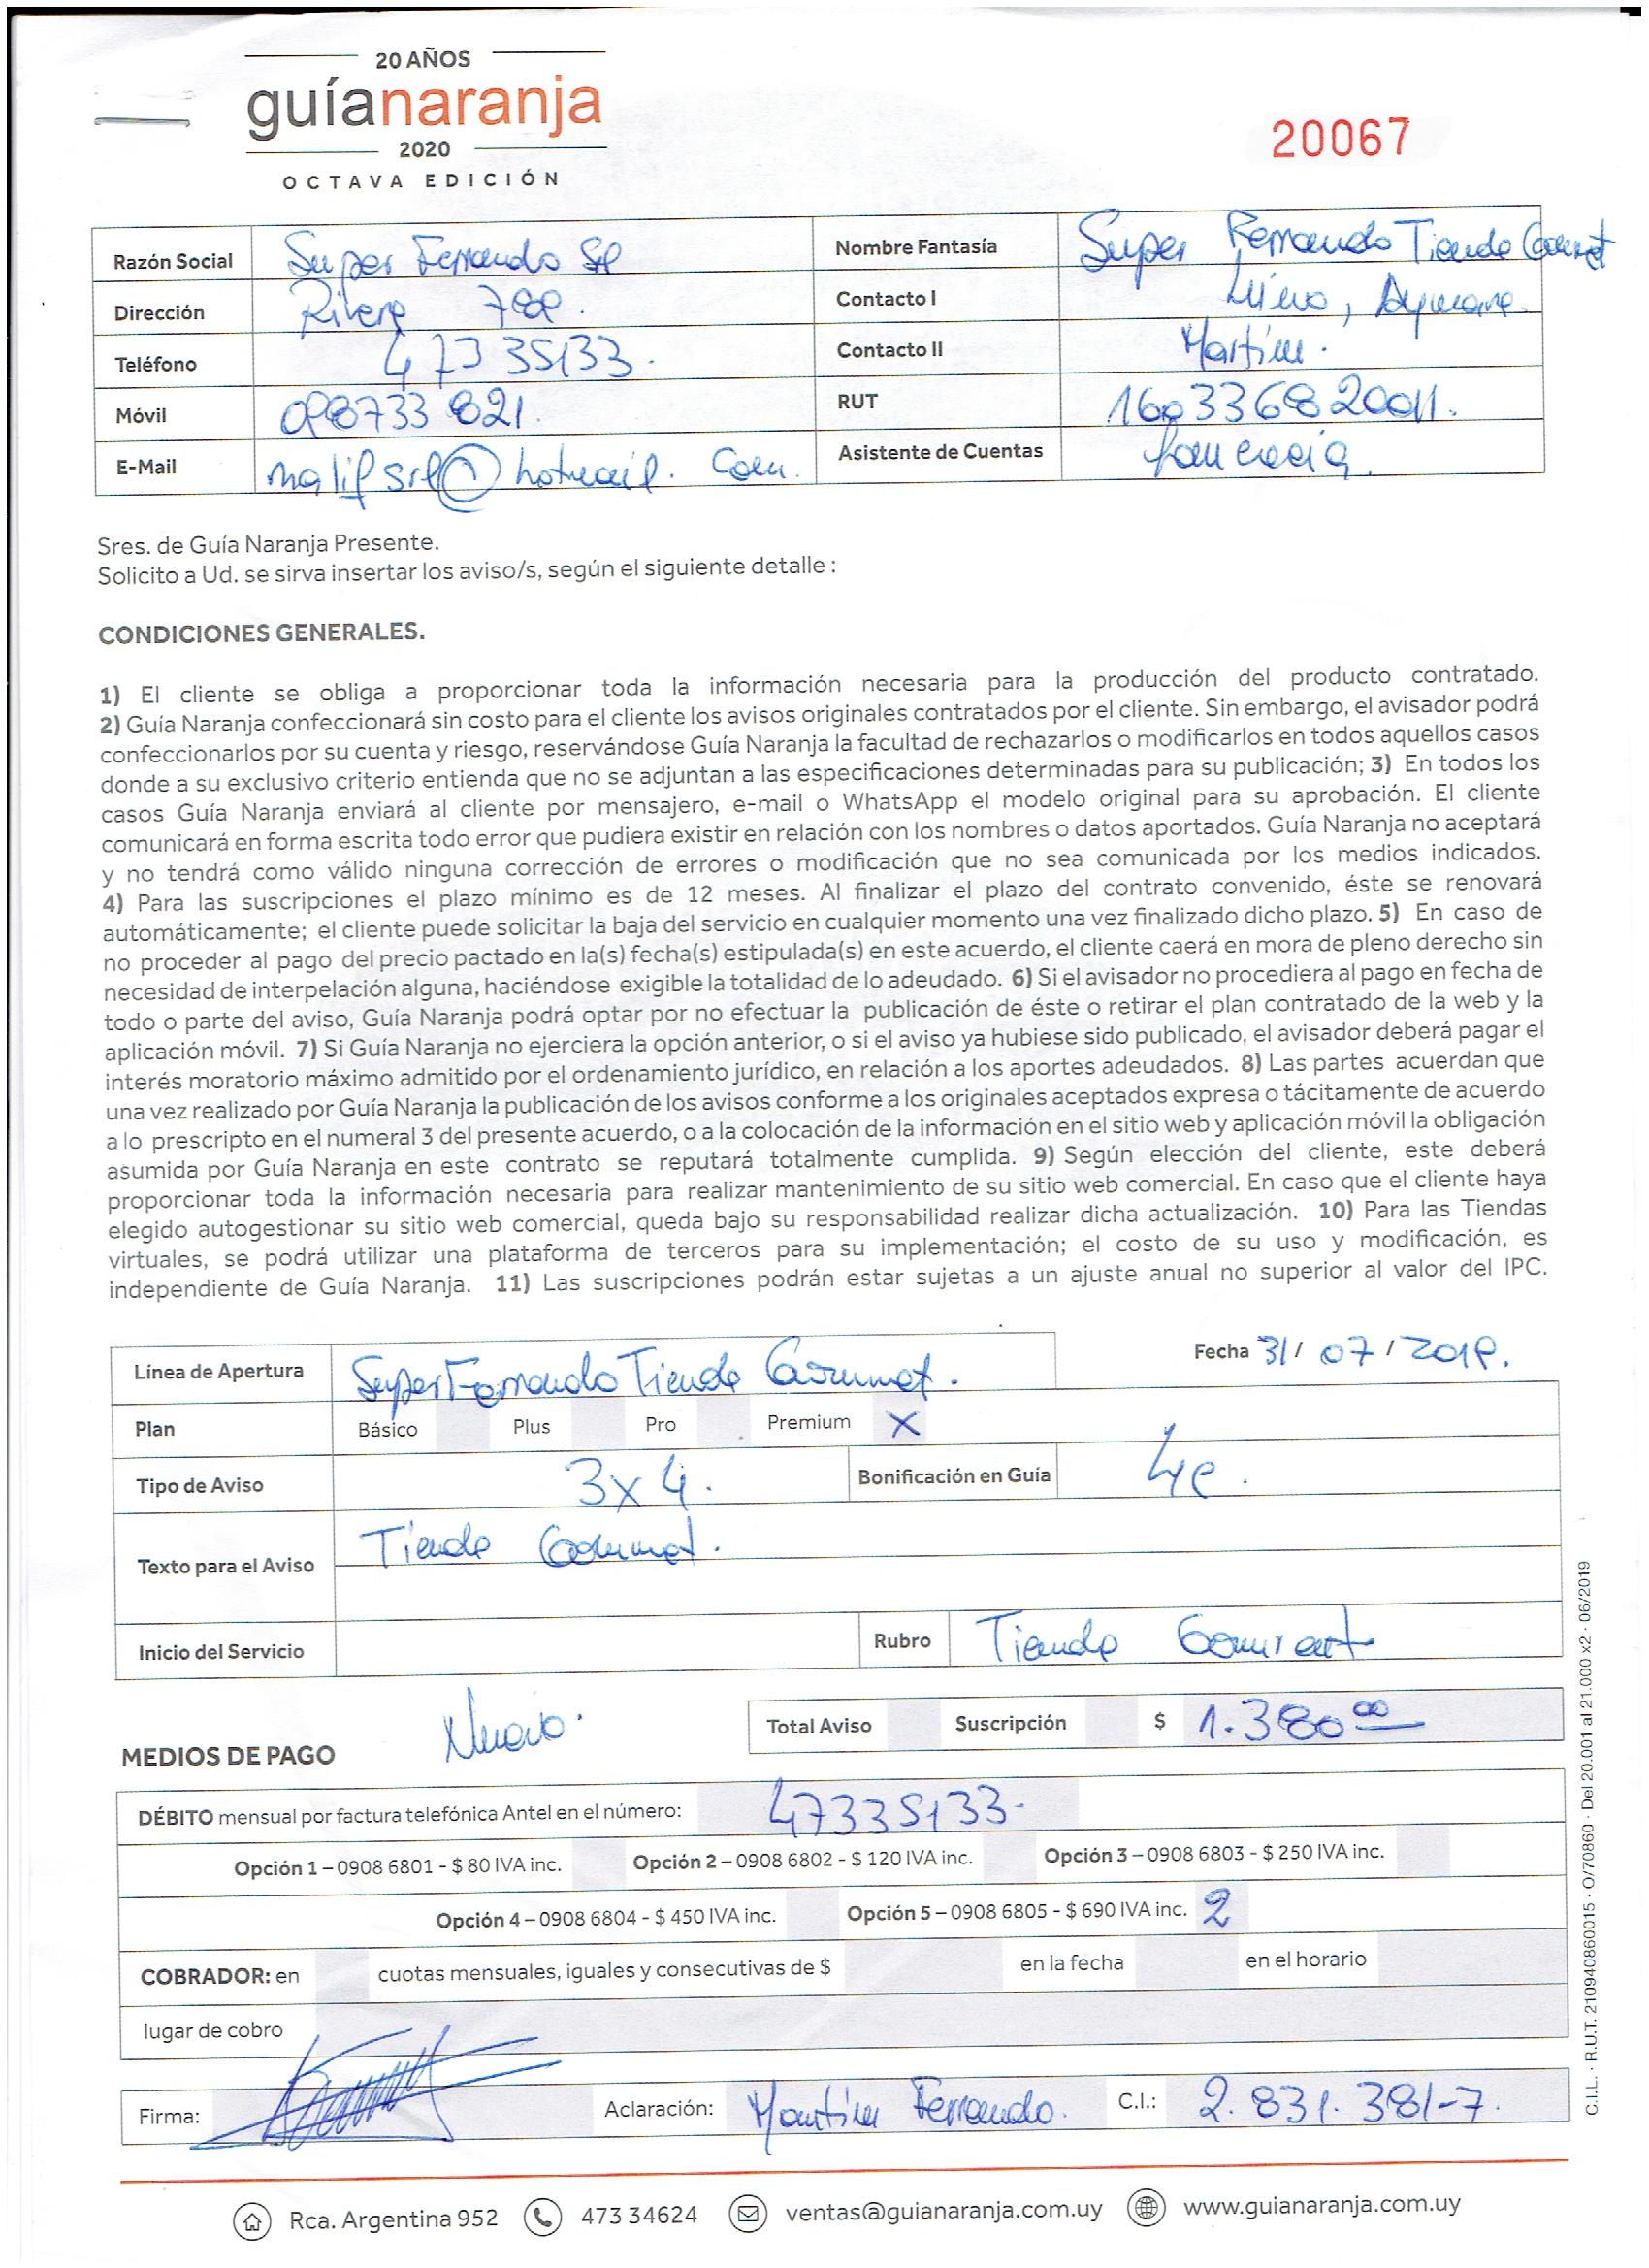 20 AÑOS
guíanaranja
2020
OCTAVA EDICIÓN
20067
Razón Social Super Ferrando Srl
Nombre Fantasía Super Ferrando Tienda Gourmet
Dirección Rivera
Contacto I
Teléfono 47335133.
Contacto II Martin.
Móvil 098733821.
RUT 160336820011.
E-Mail malifsrl@hotmail.com.
Asistente de Cuentas
Sres. de Guía Naranja Presente.
Solicito a Ud. se sirva insertar los aviso/s, según el siguiente detalle :
CONDICIONES GENERALES.
1) El cliente se obliga a proporcionar toda la información necesaria para la producción del producto contratado.
2) Guía Naranja confeccionará sin costo para el cliente los avisos originales contratados por el cliente. Sin embargo, el avisador podrá
confeccionarlos por su cuenta y riesgo, reservándose Guía Naranja la facultad de rechazarlos o modificarlos en todos aquellos casos
donde a su exclusivo criterio entienda que no se adjuntan a las especificaciones determinadas para su publicación; 3) En todos los
casos Guía Naranja enviará al cliente por mensajero, e-mail o WhatsApp el modelo original para su aprobación. El cliente
comunicará en forma escrita todo error que pudiera existir en relación con los nombres o datos aportados. Guía Naranja no aceptará
y no tendrá como válido ninguna corrección de errores o modificación que no sea comunicada por los medios indicados.
4) Para las suscripciones el plazo mínimo es de 12 meses. Al finalizar el plazo del contrato convenido, éste se renovará
automáticamente; el cliente puede solicitar la baja del servicio en cualquier momento una vez finalizado dicho plazo. 5) En caso de
no proceder al pago del precio pactado en la(s) fecha(s) estipulada(s) en este acuerdo, el cliente caerá en mora de pleno derecho sin
necesidad de interpelación alguna, haciéndose exigible la totalidad de lo adeudado. 6) Si el avisador no procediera al pago en fecha de
todo o parte del aviso, Guía Naranja podrá optar por no efectuar la publicación de éste o retirar el plan contratado de la web y la
aplicación móvil. 7) Si Guía Naranja no ejerciera la opción anterior, o si el aviso ya hubiese sido publicado, el avisador deberá pagar el
interés moratorio máximo admitido por el ordenamiento jurídico, en relación a los aportes adeudados. 8) Las partes acuerdan que
una vez realizado por Guía Naranja la publicación de los avisos conforme a los originales aceptados expresa o tácitamente de acuerdo
a lo prescripto en el numeral 3 del presente acuerdo, o a la colocación de la información en el sitio web y aplicación móvil la obligación
asumida por Guía Naranja en este contrato se reputará totalmente cumplida. 9) Según elección del cliente, este deberá
proporcionar toda la información necesaria para realizar mantenimiento de su sitio web comercial. En caso que el cliente haya
elegido autogestionar su sitio web comercial, queda bajo su responsabilidad realizar dicha actualización. 10) Para las Tiendas
virtuales, se podrá utilizar una plataforma de terceros para su implementación; el costo de su uso y modificación, es
independiente de Guía Naranja. 11) Las suscripciones podrán estar sujetas a un ajuste anual no superior al valor del IPC.
Línea de Apertura Super Ferrando Tienda Gourmet.
Fecha 31/ 07 / 2019.
Plan Básico Plus Pro Premium X
Tipo de Aviso 3x4.
Bonificación en Guía
Texto para el Aviso Tienda Gourmet.
Inicio del Servicio
Rubro Tienda Gourmet
Nuevo.
Total Aviso Suscripción $ 1.380 00
MEDIOS DE PAGO
DÉBITO mensual por factura telefónica Antel en el número: 47335133-
Opción 1 – 0908 6801 - $ 80 IVA inc. Opción 2 – 0908 6802 - $ 120 IVA inc. Opción 3 – 0908 6803 - $ 250 IVA inc.
Opción 4 – 0908 6804 - $ 450 IVA inc. Opción 5 – 0908 6805 - $ 690 IVA inc. 2
COBRADOR: en cuotas mensuales, iguales y consecutivas de $ en la fecha en el horario
lugar de cobro
Firma: Aclaración: Martin Ferrando. C.I.: 2.831.381-7.
Rca. Argentina 952 473 34624 ventas@guianaranja.com.uy www.guianaranja.com.uy
C.I.L. · R.U.T. 210940860015 · O/70860 · Del 20.001 al 21.000 x2 · 06/2019